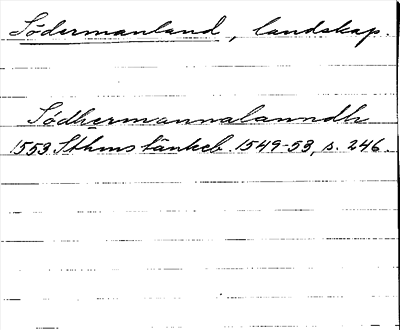 Södermanland, landskap.
Södhermannalanndh
1553 Sthms tänkeb. 1549-53, s. 246.